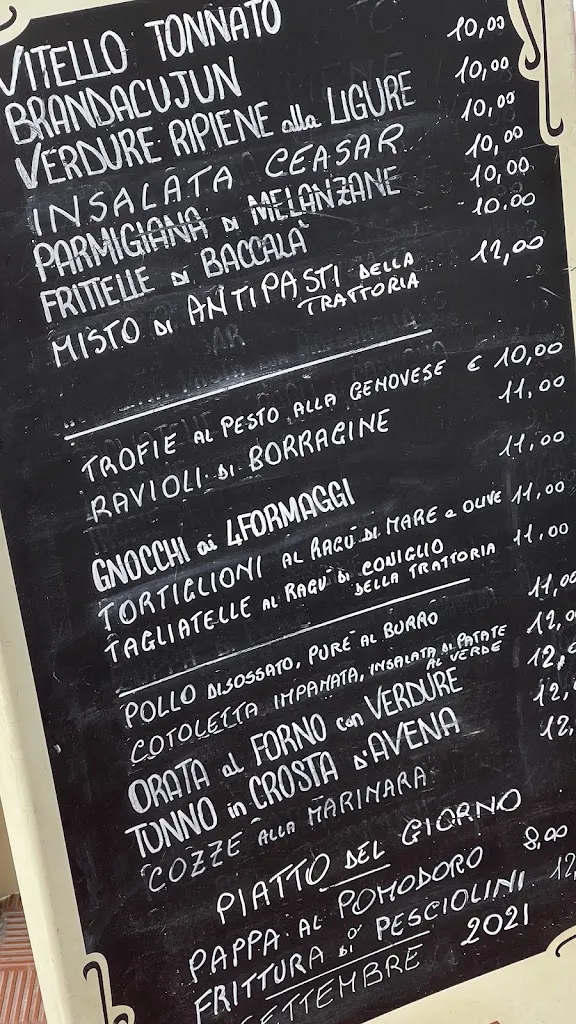 VITELLO TONNATO 10,00
BRANDACUJUN 10,00
VERDURE RIPIENE alla LIGURE 10,00
INSALATA CEASAR 10,00
PARMIGIANA DI MELANZANE 10,00
FRITTELLE DI BACCALÀ 10.00
MISTO DI ANTIPASTI DELLA TRATTORIA 12,00
TROFIE AL PESTO ALLA GENOVESE € 10,00
RAVIOLI DI BORRAGINE 11,00
GNOCCHI ai 4FORMAGGI 11,00
TORTIGLIONI AL RAGÙ DI MARE e OLIVE 11,00
TAGLIATELLE AL RAGÙ DI CONIGLIO DELLA TRATTORIA 11,00
POLLO DISOSSATO, PURÈ AL BURRO 11,0
COTOLETTA IMPANATA, INSALATA DI PATATE AL VERDE 12,0
ORATA al FORNO con VERDURE 12,
TONNO in CROSTA D'AVENA 12,
COZZE ALLA MARINARA 12,
PIATTO DEL GIORNO
PAPPA AL POMODORO 8,00
FRITTURA DI PESCIOLINI 12,
SETTEMBRE 2021